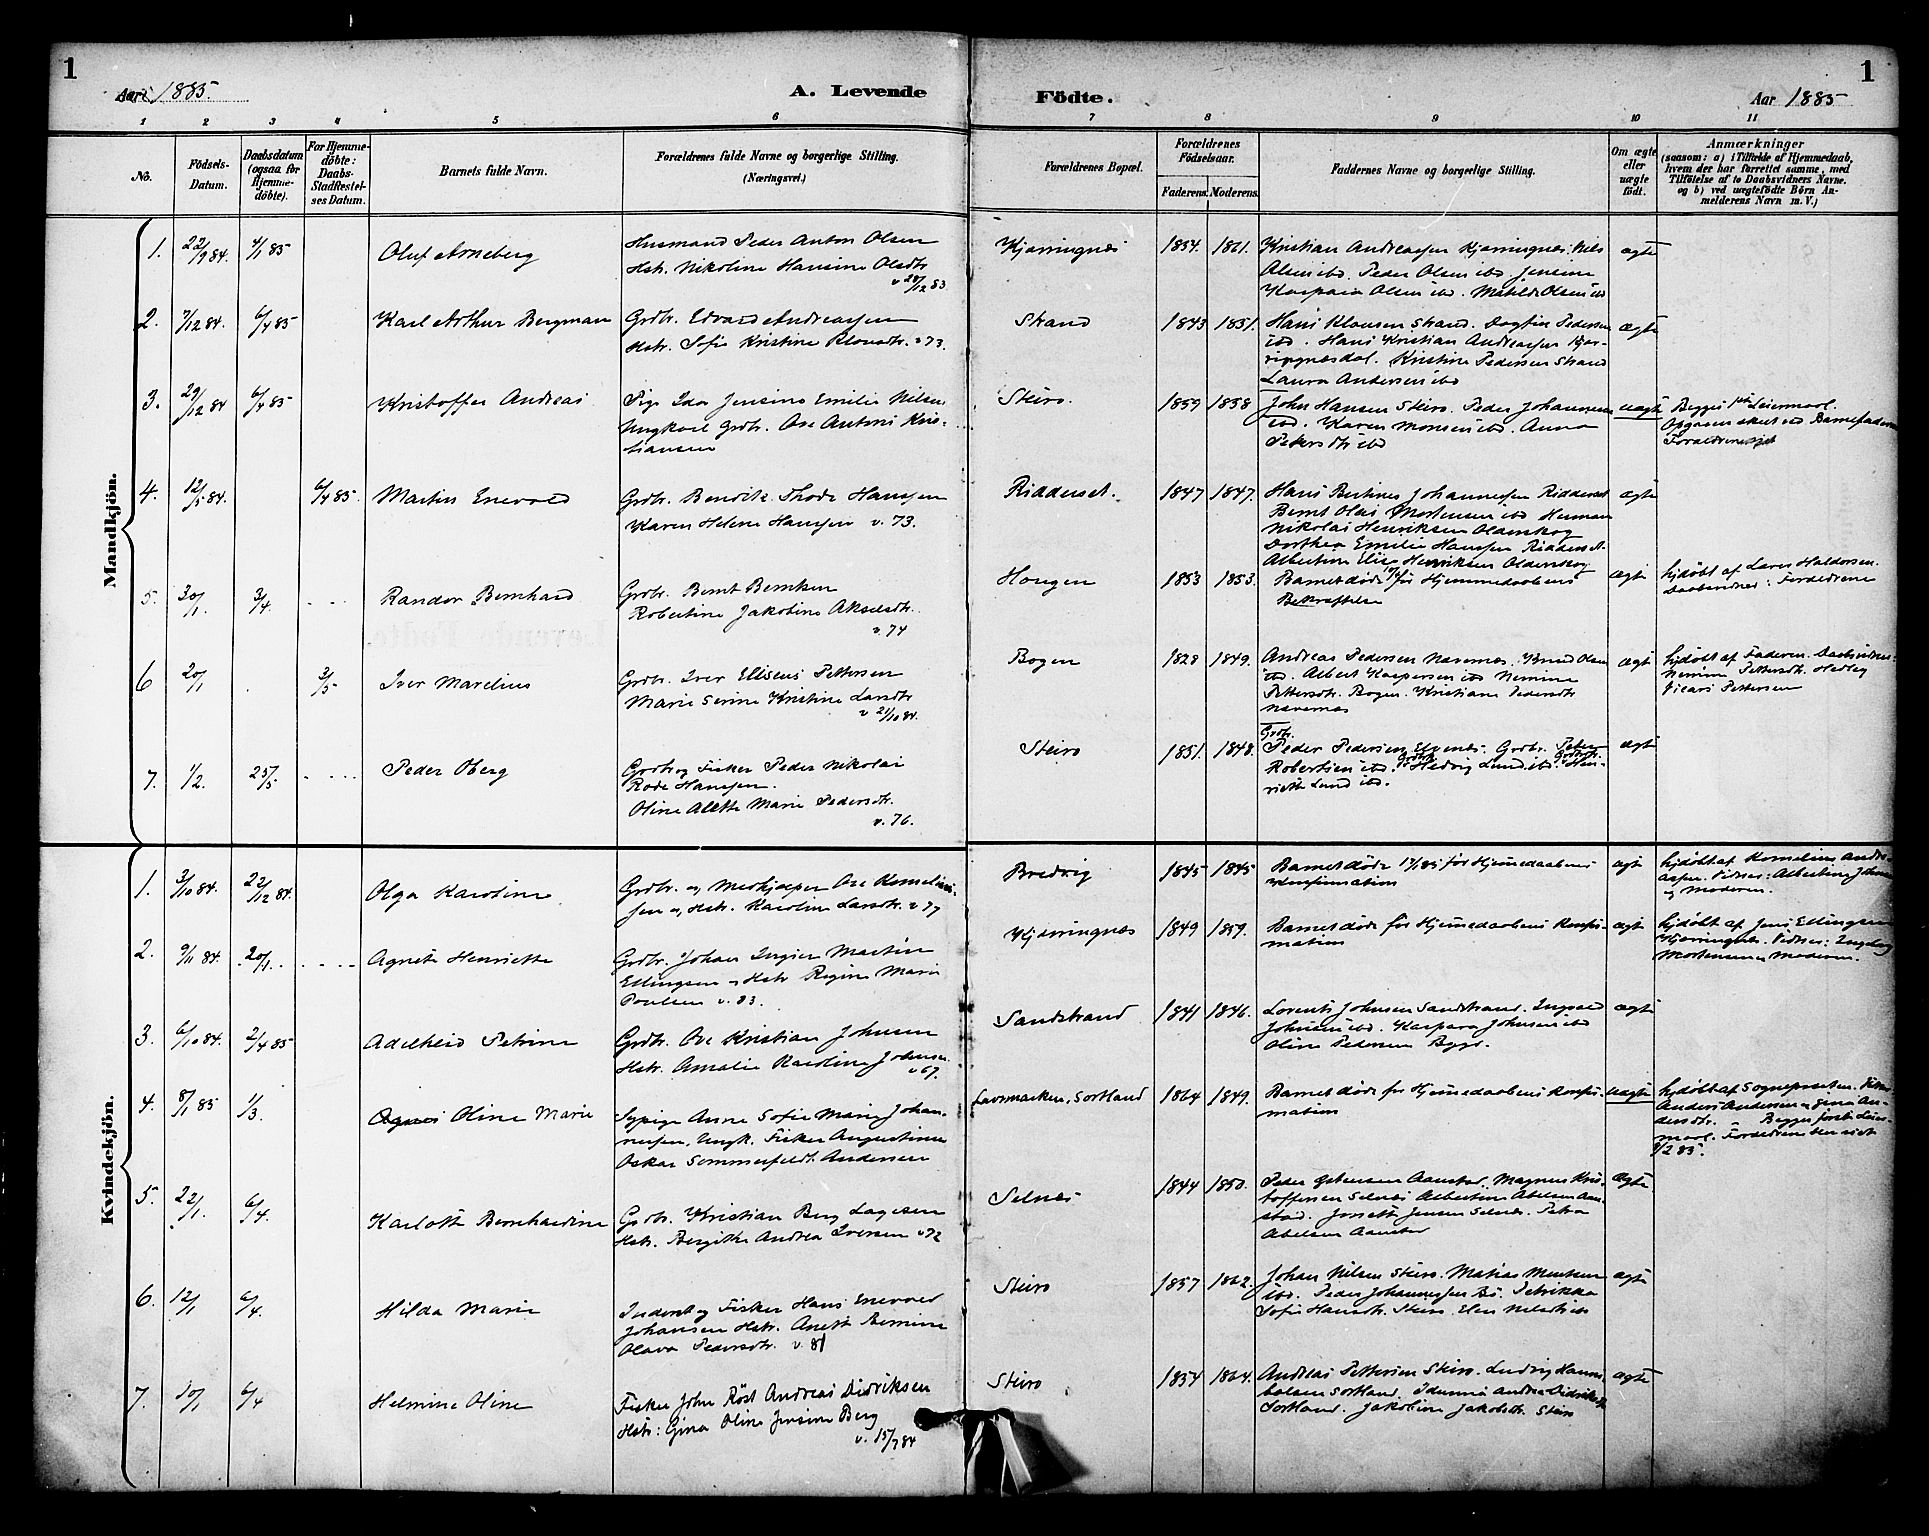 1
Aar 1885.
A. Levende
Födte.
Aar 1885
1
1 2 3 4 5 6 7 8 9 10 11
No.
Födsels-
Datum.
Daabsdatum
(ogsaa for
Hjemme-
döbte).
For Hjemme-
döbte:
Daabs-
Stadfæstel-
ses Datum.
Barnets fulde Navn.
Forældrenes fulde Navne og borgerlige Stilling.
(Næringsvei.)
Forældrenes Bopæl.
Forældrenes
Födselsaar.
Faderens. Moderens.
Faddernes Navne og borgerlige Stilling.
Om ægte
eller
uægte
födt.
Anmærkninger
(saasom: a) i Tilfælde af Hjemmedaab,
hvem der har forrettet samme, med
Tilföielse af to Daabsvidners Navne.
og b) ved uægtefödte Börn An-
melderens Navn m. V.)
Mandkjön.
1. 22/9 84. 4/1 85 Oluf Arneberg
Husmand Peder Anton Olsen
Hstr. Nikoline Hansine Olsdtr.
v 28/12 83.
Kjørringnes 1854. 1861.
Kristian Andreassen Kjørringnes. Nils
Olsen ibd. Peder Olsen ibd. Jensine
Kaspara Olsen ibd. Matilde Olsen ibd
ægte
2. 7/12 84. 6/4 85 Karl Arthur Bergman
Grdbr. Edvard Andreassen
Hstr. Sofie Kristine v 73.
Strand 1843 1851.
Hans Klausen Strand. Dagfin Pedersen
ibd. Hans Kristian Andreassen Kjør-
ringnesdal. Kristine Pedersen Strand
Laura Andersen ibd
ægte
3. 29/12 84 6/4 85 Kristoffer Andreas
Pige Ida Jensine Emilie Nilsen
Ungkarl Grdbr. Ove Antoni Kris-
tiansen
Steiro. 1859 1858
John Hansen Steiro. Peder Johannesen
ibd. Karen Monsen ibd. Anna
Petersdtr ibd
uægte
Begges 1ste Leiermaal.
Opgaven skeet ved Barnefaderen
4. 12/5 84. 6/4 85. Martin Enevold
Grdbr. Benditz Thode Hanssen
Karen Helene Hanssen v. 73.
Ridderset. 1847 1847.
Hans Bertines Johannessen Ridderset
Bernt Olai Mortensen ibd Herman
Nikolai Henriksen Oldenskog
Dorthea Emilie Hanssen Ridderset.
Albertine Elise Henriksen Oldenskog
ægte
5. 30/1 3/4. Randor Bernhard
Grdbr. Bernt Berntsen
Robertine Jakobine Akselsdtr.
v. 74
Haugen 1853 1853.
Barnet døde før Hjemmedaabens
Bekræftelse
ægte
hjdøbt af Lars Haldorsen.
Daabsvidner: Forældrene
6 20/1 3/5 Iver Marelius
Grdbr. Iver Eliseus Pettersen
Marie Serine Kristine Larsdtr
v 21/10 84.
Bogen 1828 1849.
Andreas Pedersen Navernes.
ibd. Albert Kaspersen ibd Nemine
Pettersdtr. Bogen. Kristiane Pedersdtr
Navernes
ægte
hjdøbt af Faderen. Daabsvidner:
Nemine Pettersdtr. Hedley
Pettersen
7. 1/2. 25/5 Peder Oberg
Grdbr og Fisker Peder Nikolai
Rode Hanssen.
Oline Alette Marie Pedersdtr.
v. 76.
Steiro 1851. 1848.
Grdbr.
Peder Pedersen Elvenes. Grdbr. Peter
Robertsen ibd. Hedvig Lund ibd. Hen-
riette Lund ibd.
ægte
Kvindekjön.
1. 3/10 84. 22/12 84. Olga Karoline
Grdbr. og Medhjælper Ove Korneliu-
sen og Hstr. Karoline Larsdtr. v 77
Bredvig 1845 1845
Barnet døde 17/1 85 før Hjemmedaabens
Konfirmation
ægte
hjdøbt af Kornelius Andre-
assen. Vidner: Albertine Johnsen
og Moderen.
2. 9/11 84. 20/1. Agnete Henriette
Grdbr. Johan Ingier Martin
Ellingsen og Hstr Regine Marie
Paulsen v. 83.
Kjørringnes 1849 1859.
Barnet døde før Hjemmedaabens Konfir-
mation
ægte
hjdøbt af Jens Ellingsen
Kjørringnes. Vidner: Ingeborg
Mortensen og Moderen.
3. 6/10 84. 2/4 85 Adelheid Petrine
Grdbr. Ove Kristian Johnsen
Hstr. Amalie Karoline Johnsen
v 67.
Sandstrand 1841 1846.
Lorents Johnsen Sandstrand. Ingvald
Johnsen ibd. Kaspara Johnsen ibd
Oline Pedersen Bygd.
ægte
4. 8/1 85 1/3. Agnes Oline Marie
Sypige Anne Sofie Marie Johan-
nesen, Ungk. Fisker Augustinus
Oskar Sommerfeldt Andersen
Lavmarken, Sortland 1864 1849.
Barnet døde før Hjemmedaabens Konfir-
mation
uægte
hjdøbt af Sognepresten. Vidner
Anders Andersen og Gina An-
dersdtr. Begges første Leier-
maal. Forældrene blev viet
2/2 85.
5. 22/1. 6/4. Karlotte Bernhardine
Grdbr. Kristian Berg Lagesen
Hstr. Bergithe Andrea Iversen v 72
Selnes 1844 1850.
Peder Aanstad. Magnus Kris-
toffersen Selnes Albertine Abelsen Aan-
stad. Josette Jensen Selnes. Petra
Abelsen Aanstad
ægte
6. 12/1 6/4. Hilda Marie
Inderst og Fisker Hans Enevold
Johansen Hstr. Anett Bernine
Olava Pedersdtr. v. 81
Steiro 1857 1862.
Johan Nilsen Steiro. Matias Mentsen
ibd. Peder Johannessen Bø. Petrikke
Sofie Hansdtr. Steiro. Elen Nilsdtr ibd
ægte
7. 20/1 6/4 Helmine Oline
Fisker John Röst Andreas Didriksen
Hstr: Gina Oline Jensine Berg
v. 15/7 84
Steiro 1854 1864.
Andreas Pettersen Steiro. Ludvig Hanni-
balsen Sortland. Idunna Andrea Didriksen
Sortland. Jakobine Jakobsdtr. Steiro
ægte